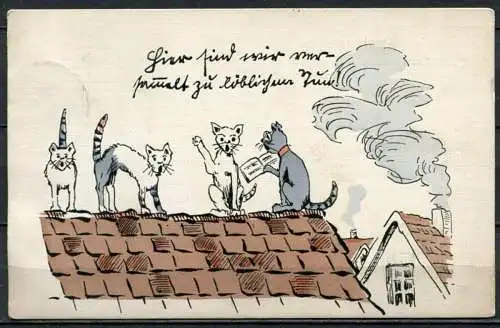 Hier sind wir ver-
sam̅elt zu löblichem Tun